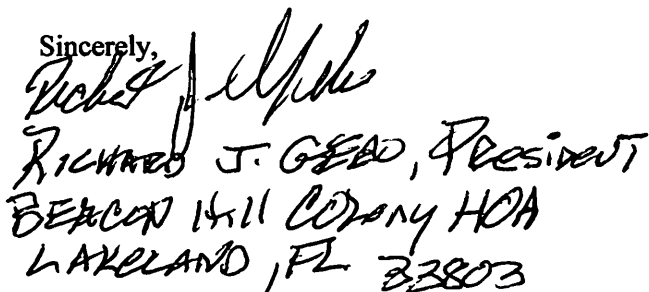 Sincerely,
Richard J.
RICHARD J. GEBO, PRESIDENT
BEACON Hill COLONY HOA
LAKELAND, FL 33803